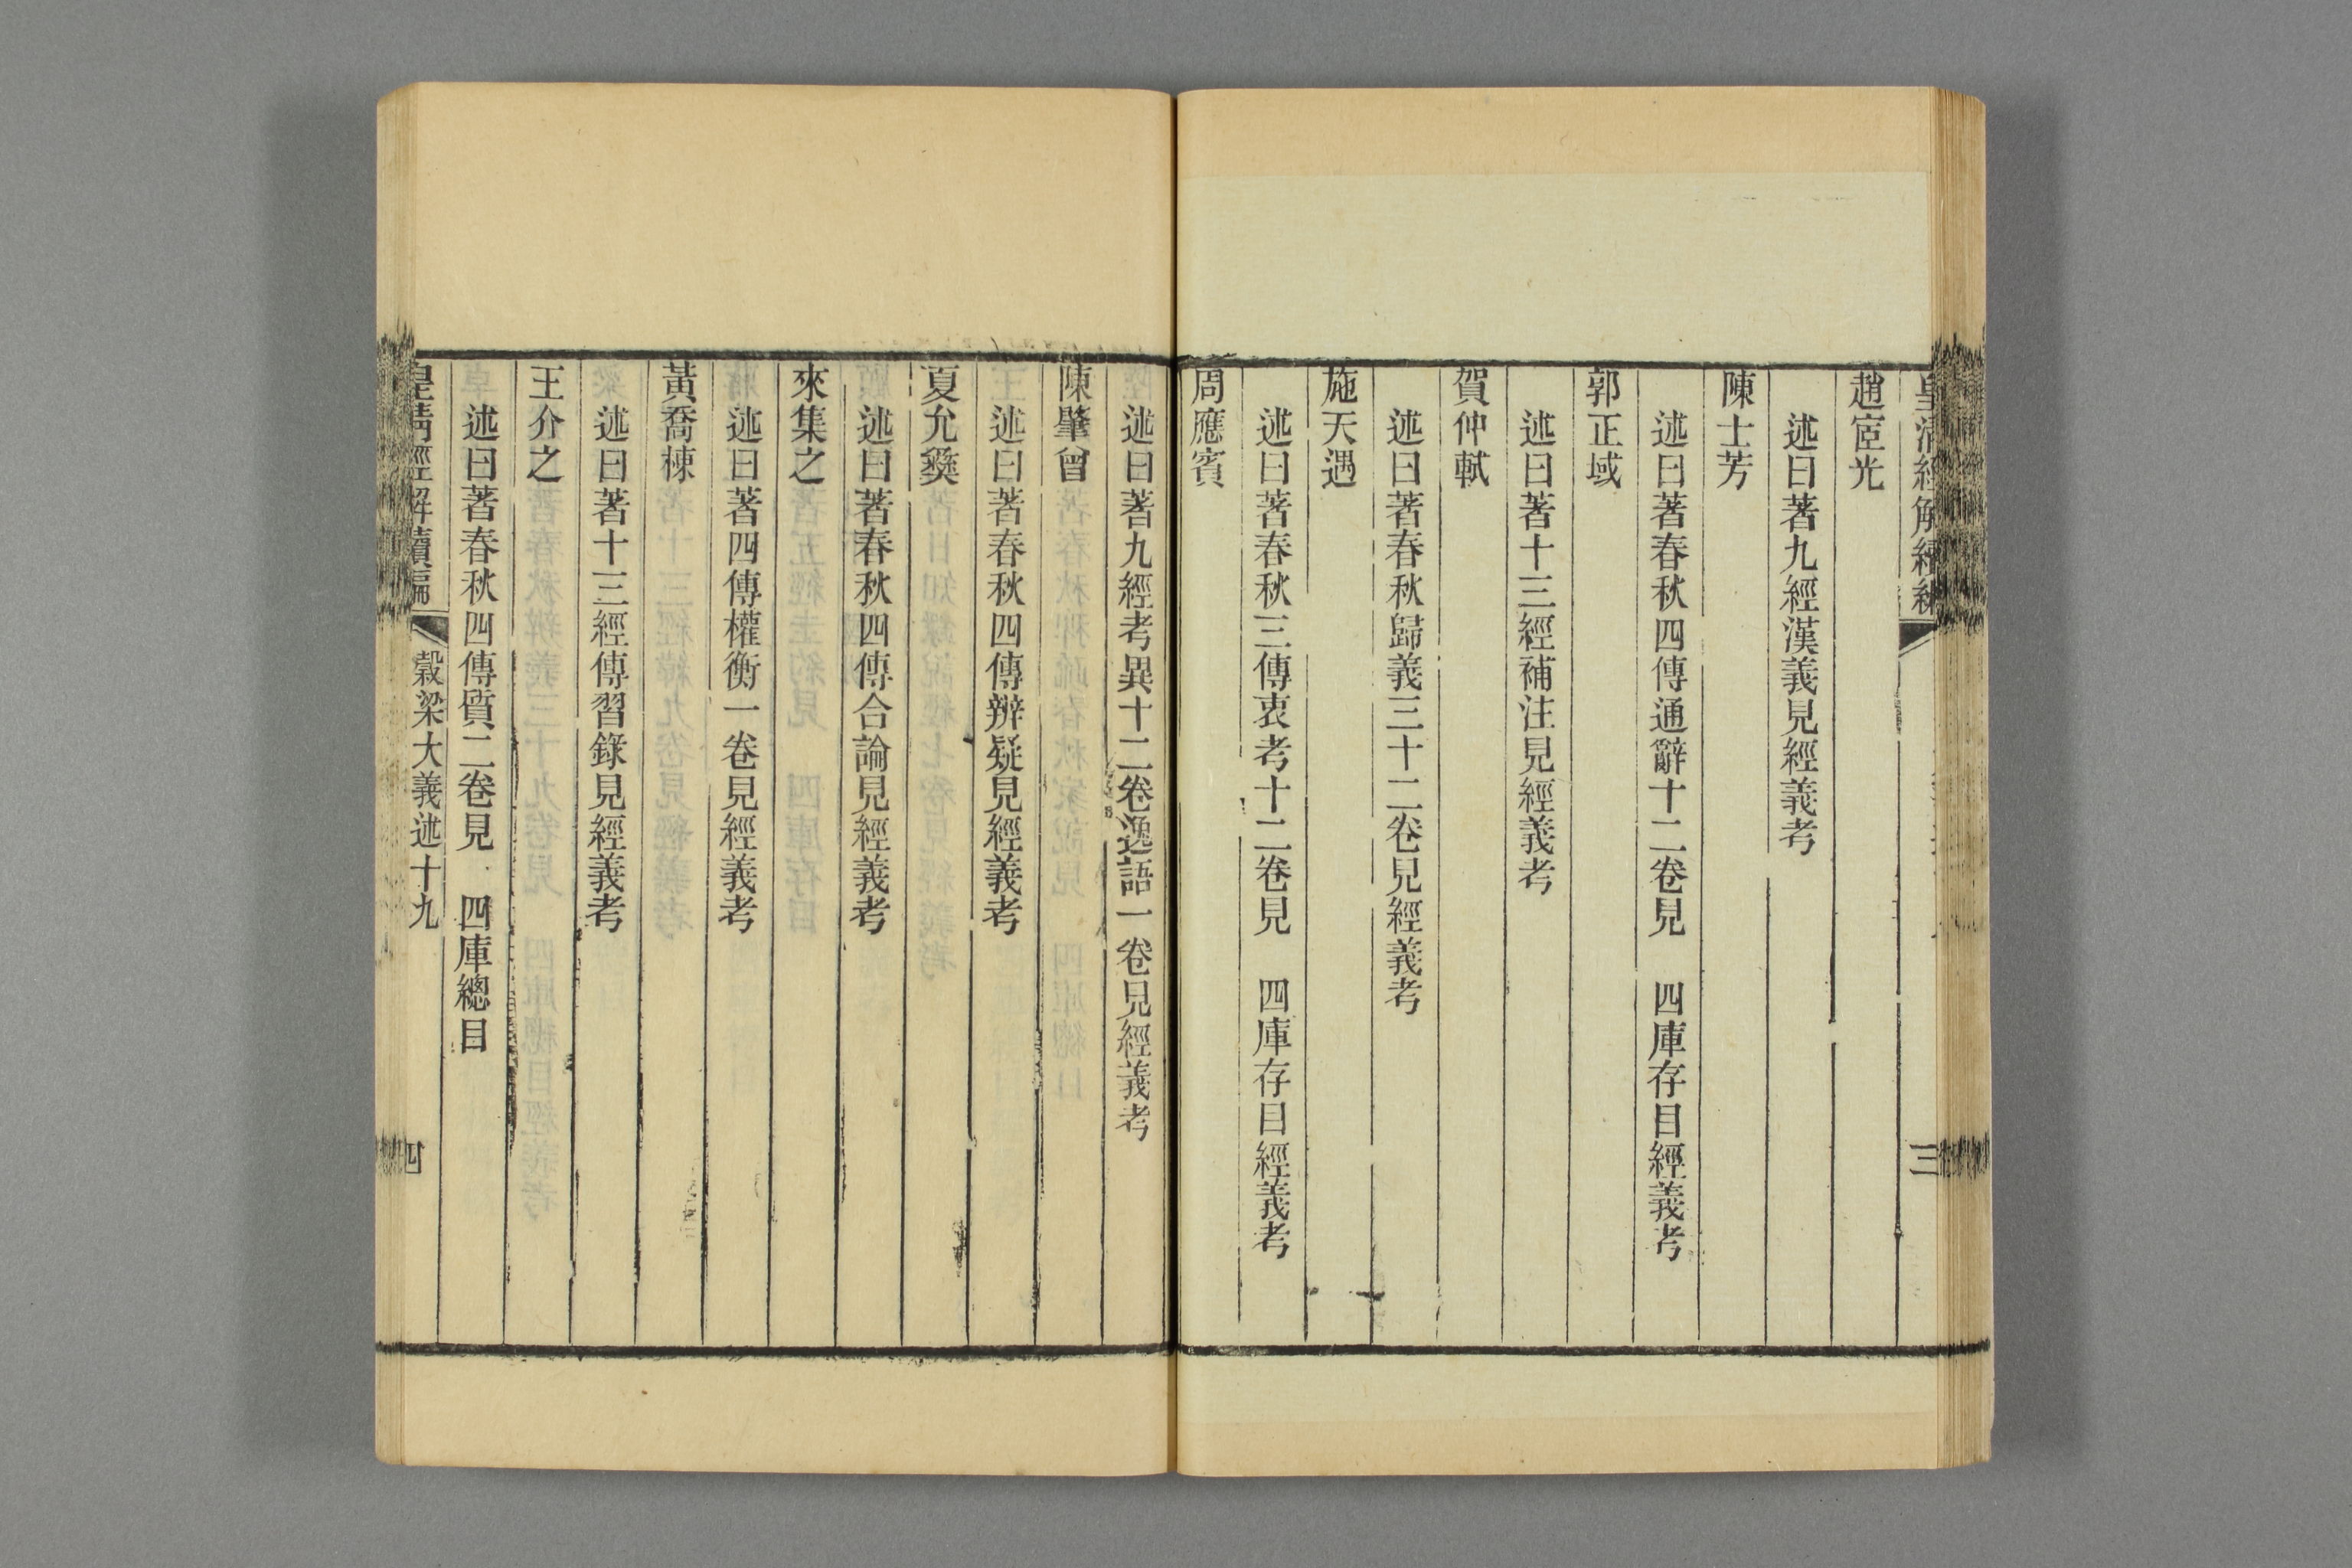 皇清經解續編
三
趙宧光
述曰著九經漢義見經義考
陳士芳
述曰著春秋四傳通辭十二卷見　四庫存目經義考
郭正域
述曰著十三經補注見經義考
賀仲軾
述曰著春秋歸義三十二卷見經義考
施天遇
述曰著春秋三傳衷考十二卷見　四庫存目經義考
周應賓
述曰著九經考異十二卷逸語一卷見經義考
陳肇曾
述曰著春秋四傳辨疑見經義考
夏允彝
述曰著春秋四傳合論見經義考
來集之
述曰著四傳權衡一卷見經義考
黃喬棟
述曰著十三經傳習錄見經義考
王介之
述曰著春秋四傳質二卷見　四庫總目
皇清經解續編　穀梁大義述十九　四